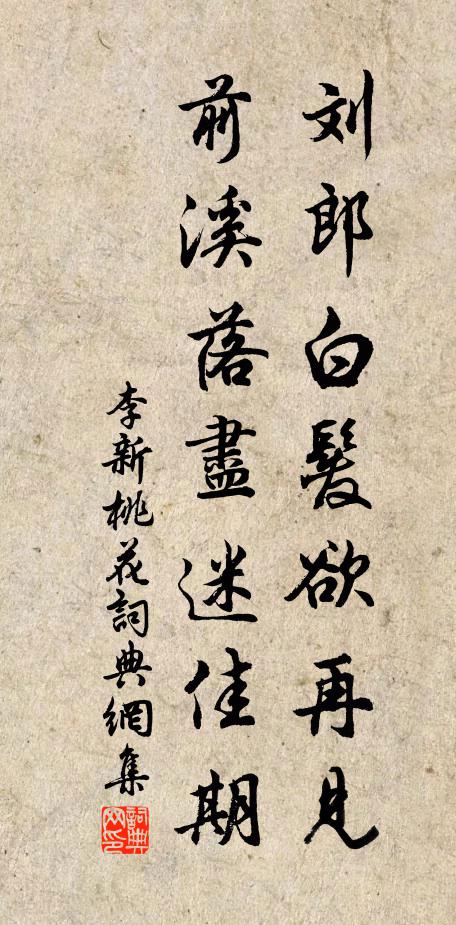 刘郎白髮欲再見
前溪落盡迷佳期
李新桃花詞典網集
詞典网印